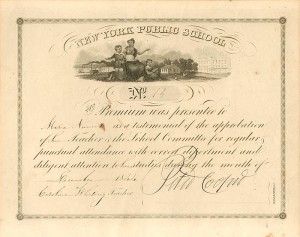 NEW YORK PUBLIC SCHOOL
No 12
A Premium was presented to
Miss as a testimonial of the approbation
of her Teacher & the School Committee for regular
punctual attendance with correct deportment and
diligent attention to her studies during the month of
1844
Caroline Whiting Teacher
Peter Cooper